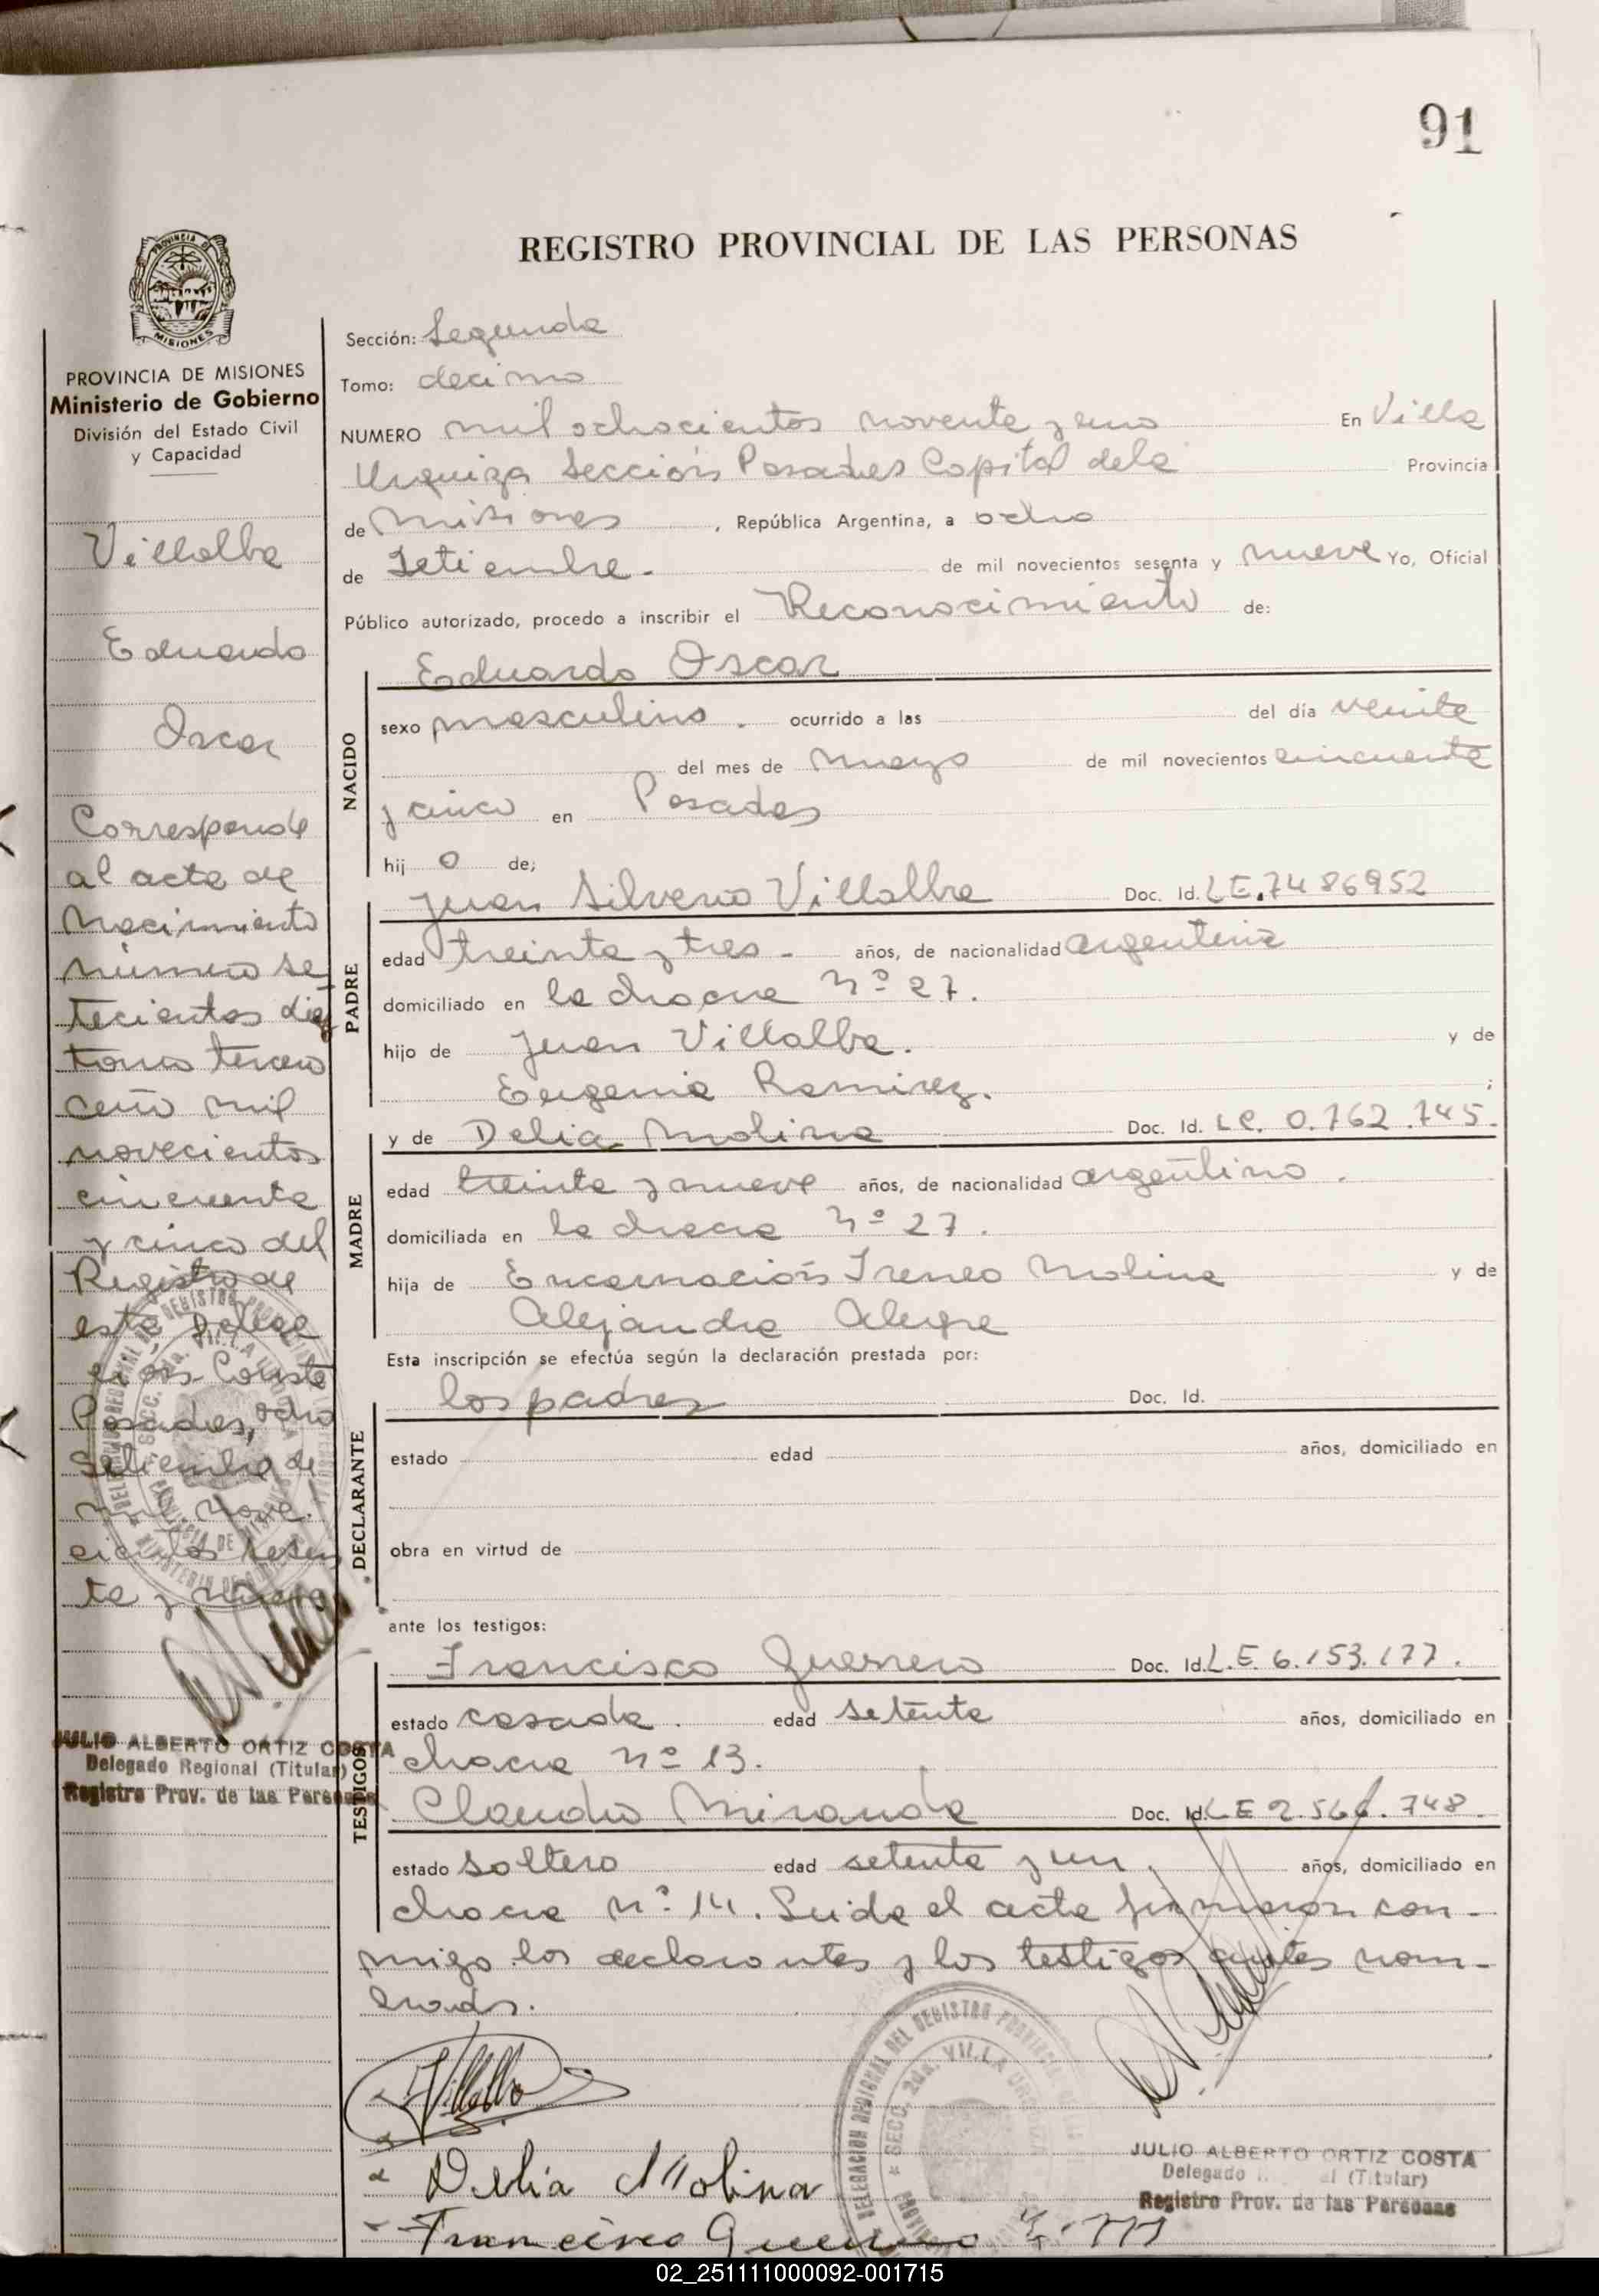 91
REGISTRO PROVINCIAL DE LAS PERSONAS
MISIONES
PROVINCIA DE MISIONES
Ministerio de Gobierno
División del Estado Civil
y Capacidad
Villalba
Eduardo
Oscar
Corresponde
al acta de
Nacimiento
número se
tecientos diez
tomo tercero
año mil
novecientos
cincuenta
y cinco del
Registro de
esta Delega
ción. Conste
Posadas, ocho
Setiembre de
mil nove
cientos sesen
ta y nueve
JULIO ALBERTO ORTIZ COSTA
Delegado Regional (Titular)
Registro Prov. de las Personas
Sección: Segunda
Tomo: decimo
NUMERO mil ochocientos noventa y uno En Villa
Urquiza Sección Posadas Capital de la Provincia
de Misiones, República Argentina, a ocho
de Setiembre. de mil novecientos sesenta y nueve Yo, Oficial
Público autorizado, procedo a inscribir el Reconocimiento de:
NACIDO
Eduardo Oscar
sexo masculino. ocurrido a las del día veinte
del mes de mayo de mil novecientos cincuenta
y cinco en Posadas
hij o de;
PADRE
Juan Silverio Villalba Doc. Id. L E. 7486952
edad treinta y tres - años, de nacionalidad argentina
domiciliado en la chacra nº 27.
hijo de Juan Villalba. y de
Eugenia Ramirez. ;
MADRE
y de Delia Molina Doc. Id. L C. 0.762.745.
edad treinta y nueve años, de nacionalidad argentina.
domiciliada en la chacra nº 27.
hija de Encarnación Ireneo Molina y de
Alejandra Alegre
Esta inscripción se efectúa según la declaración prestada por:
DECLARANTE
los padres Doc. Id.
estado edad años, domiciliado en
obra en virtud de
ante los testigos:
TESTIGOS
Francisco Guerrero Doc. Id. L. E. 6.153.177.
estado casado. edad setenta años, domiciliado en
chacra nº 13.
Claudio Miranda Doc. Id. L E 2.566.748.
estado soltero edad setenta y un, años, domiciliado en
chacra nº 14. Leida el acta firmaron con-
migo los declarantes y los testigos antes nom-
brados.
Villalba
Delia Molina
Francisco Guerrero
JULIO ALBERTO ORTIZ COSTA
Delegado (Titular)
Registro Prov. de las Personas
02_251111000092-001715